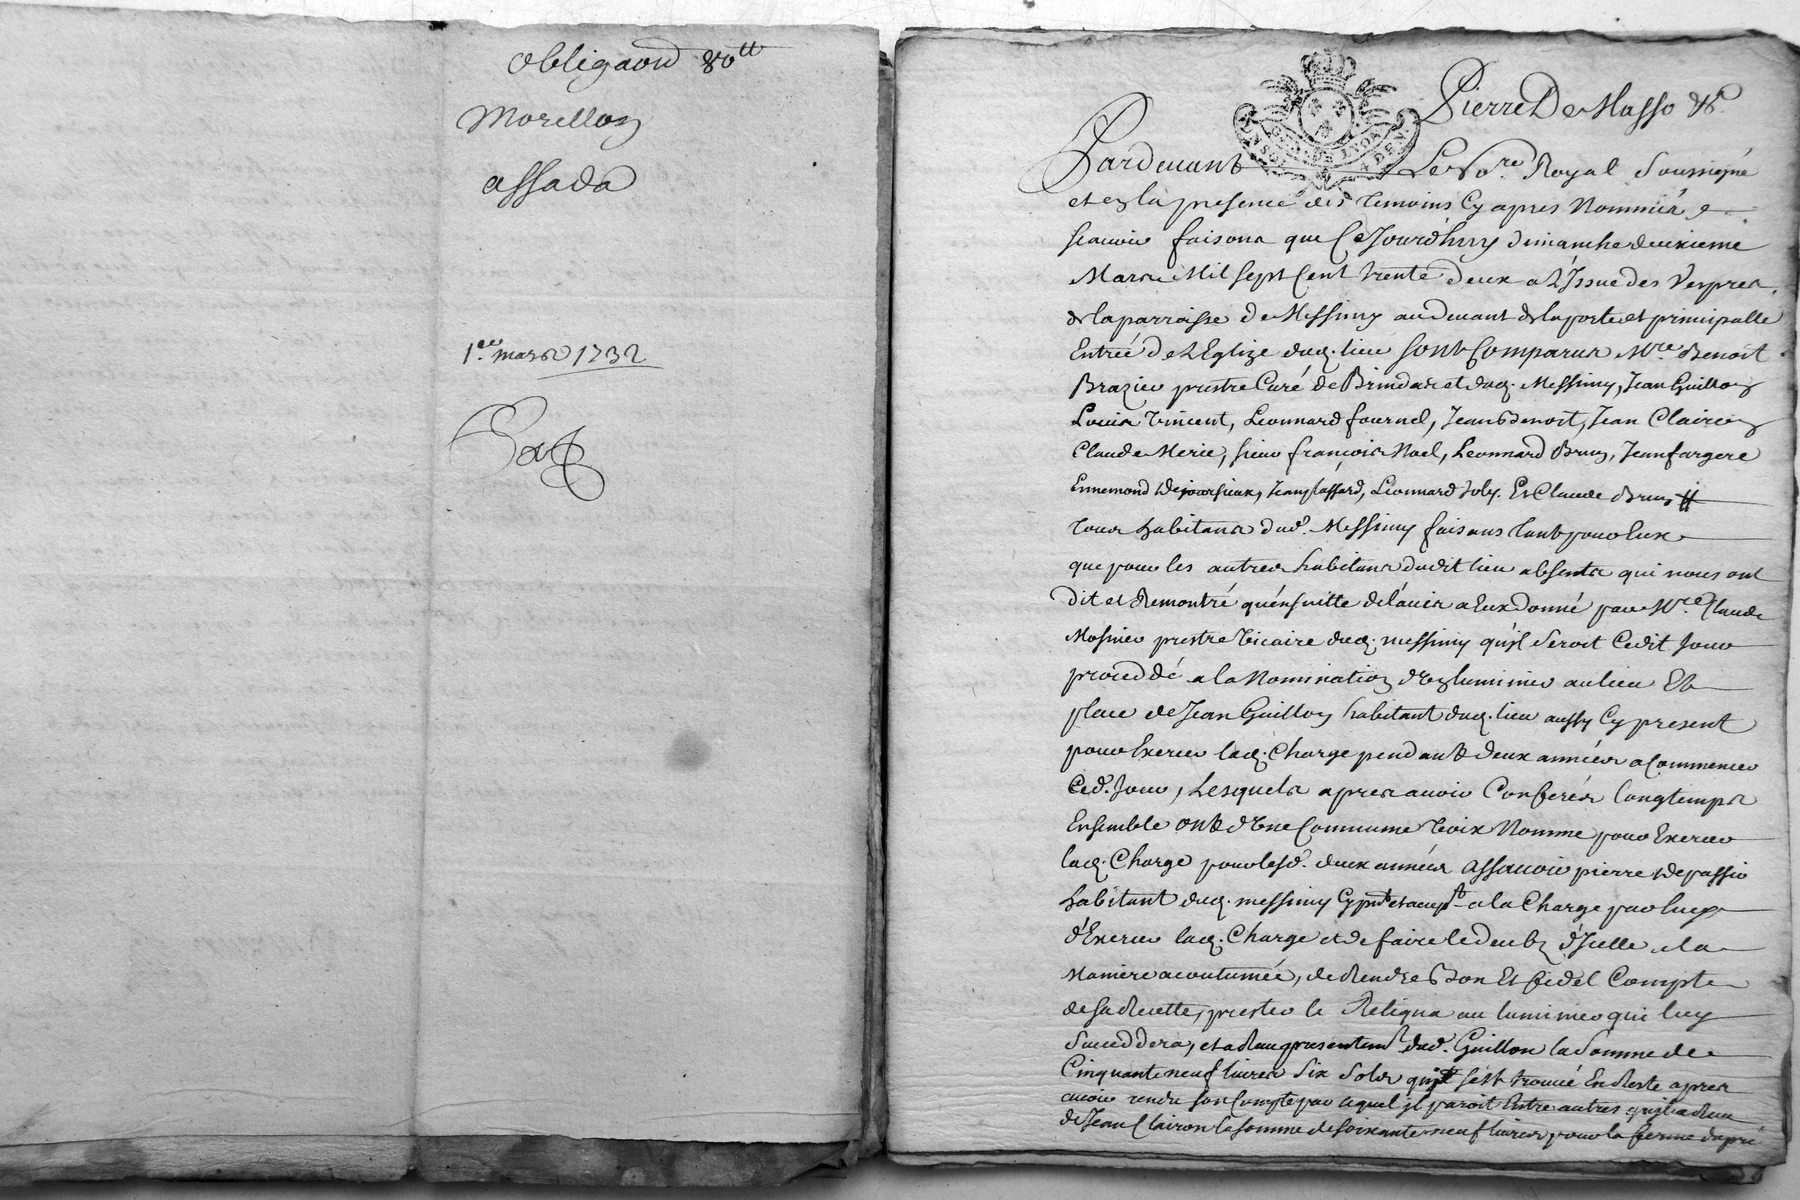 obligaon 80tt
Morillon
assada
1.er mars 1732
Pierre De Masso
Pardevant Le No.re Royal soussigné
et en la presence des temoins Cy apres Nommés
scavoir faisons que Ce Jourdhuy dimanche deuxieme
Mars Mil sept Cent trente deux a L'Issue des Vespres
de la parroisse de Messimy au devant de la porte et principalle
Entreé de L'Eglize dud. lieu sont Comparus M.re Benoit
Brazier prestre Curé de Brindas et dud. Messimy, Jean Guillon
Louis Vincent, Leonnard fournel, Jean Benoit, Jean Clairon
Claude Merie, sieur françois Noel, Leonnard Brun, Jean fargere
Ennemond Dejoursieux, Jean Jassard, Leonnard Joly. Et Claude Brun
tous habitans dud. Messimy faisans tant pour Eux
que pour les autres habitans dudit lieu absents qui nous ont
Dit et Remontré qu'ensuitte de lavis a Eux donné par M.re Claude
Mosnier prestre Vicaire dud. messimy qu'il seroit Cedit Jour
proceddé a la Nomination d'un luminier au lieu Et
place de Jean Guillon habitant dud. lieu aussy Cy present
pour Exercer lad. Charge pendant deux années a Commencer
Ced. Jour, Lesquels apres avoir Conferés longtemps
Ensemble ont d'une Commune Voix Nommé pour Exercer
lad. Charge pour lesd. deux années assavoir pierre Depassio
habitant dud. messimy Cy pnt et acept a la Charge par luy
d'Exercer lad. Charge et de faire le deub d'Icelle a la
Maniere acoutumée, de Rendre Bon Et fidel Compte
de sa Recette, prester le Reliqua au luminier qui luy
succeddera, et a Reçu presentem.t dud. Guillon la somme de
Cinquante neuf livres six sols qu'il s'est trouvé En Reste apres
avoir rendu son Compte par lequel il paroit Entre autres qu'il a Receu
de Jean Clairon la somme de soixante neuf livres pour la ferme du pré